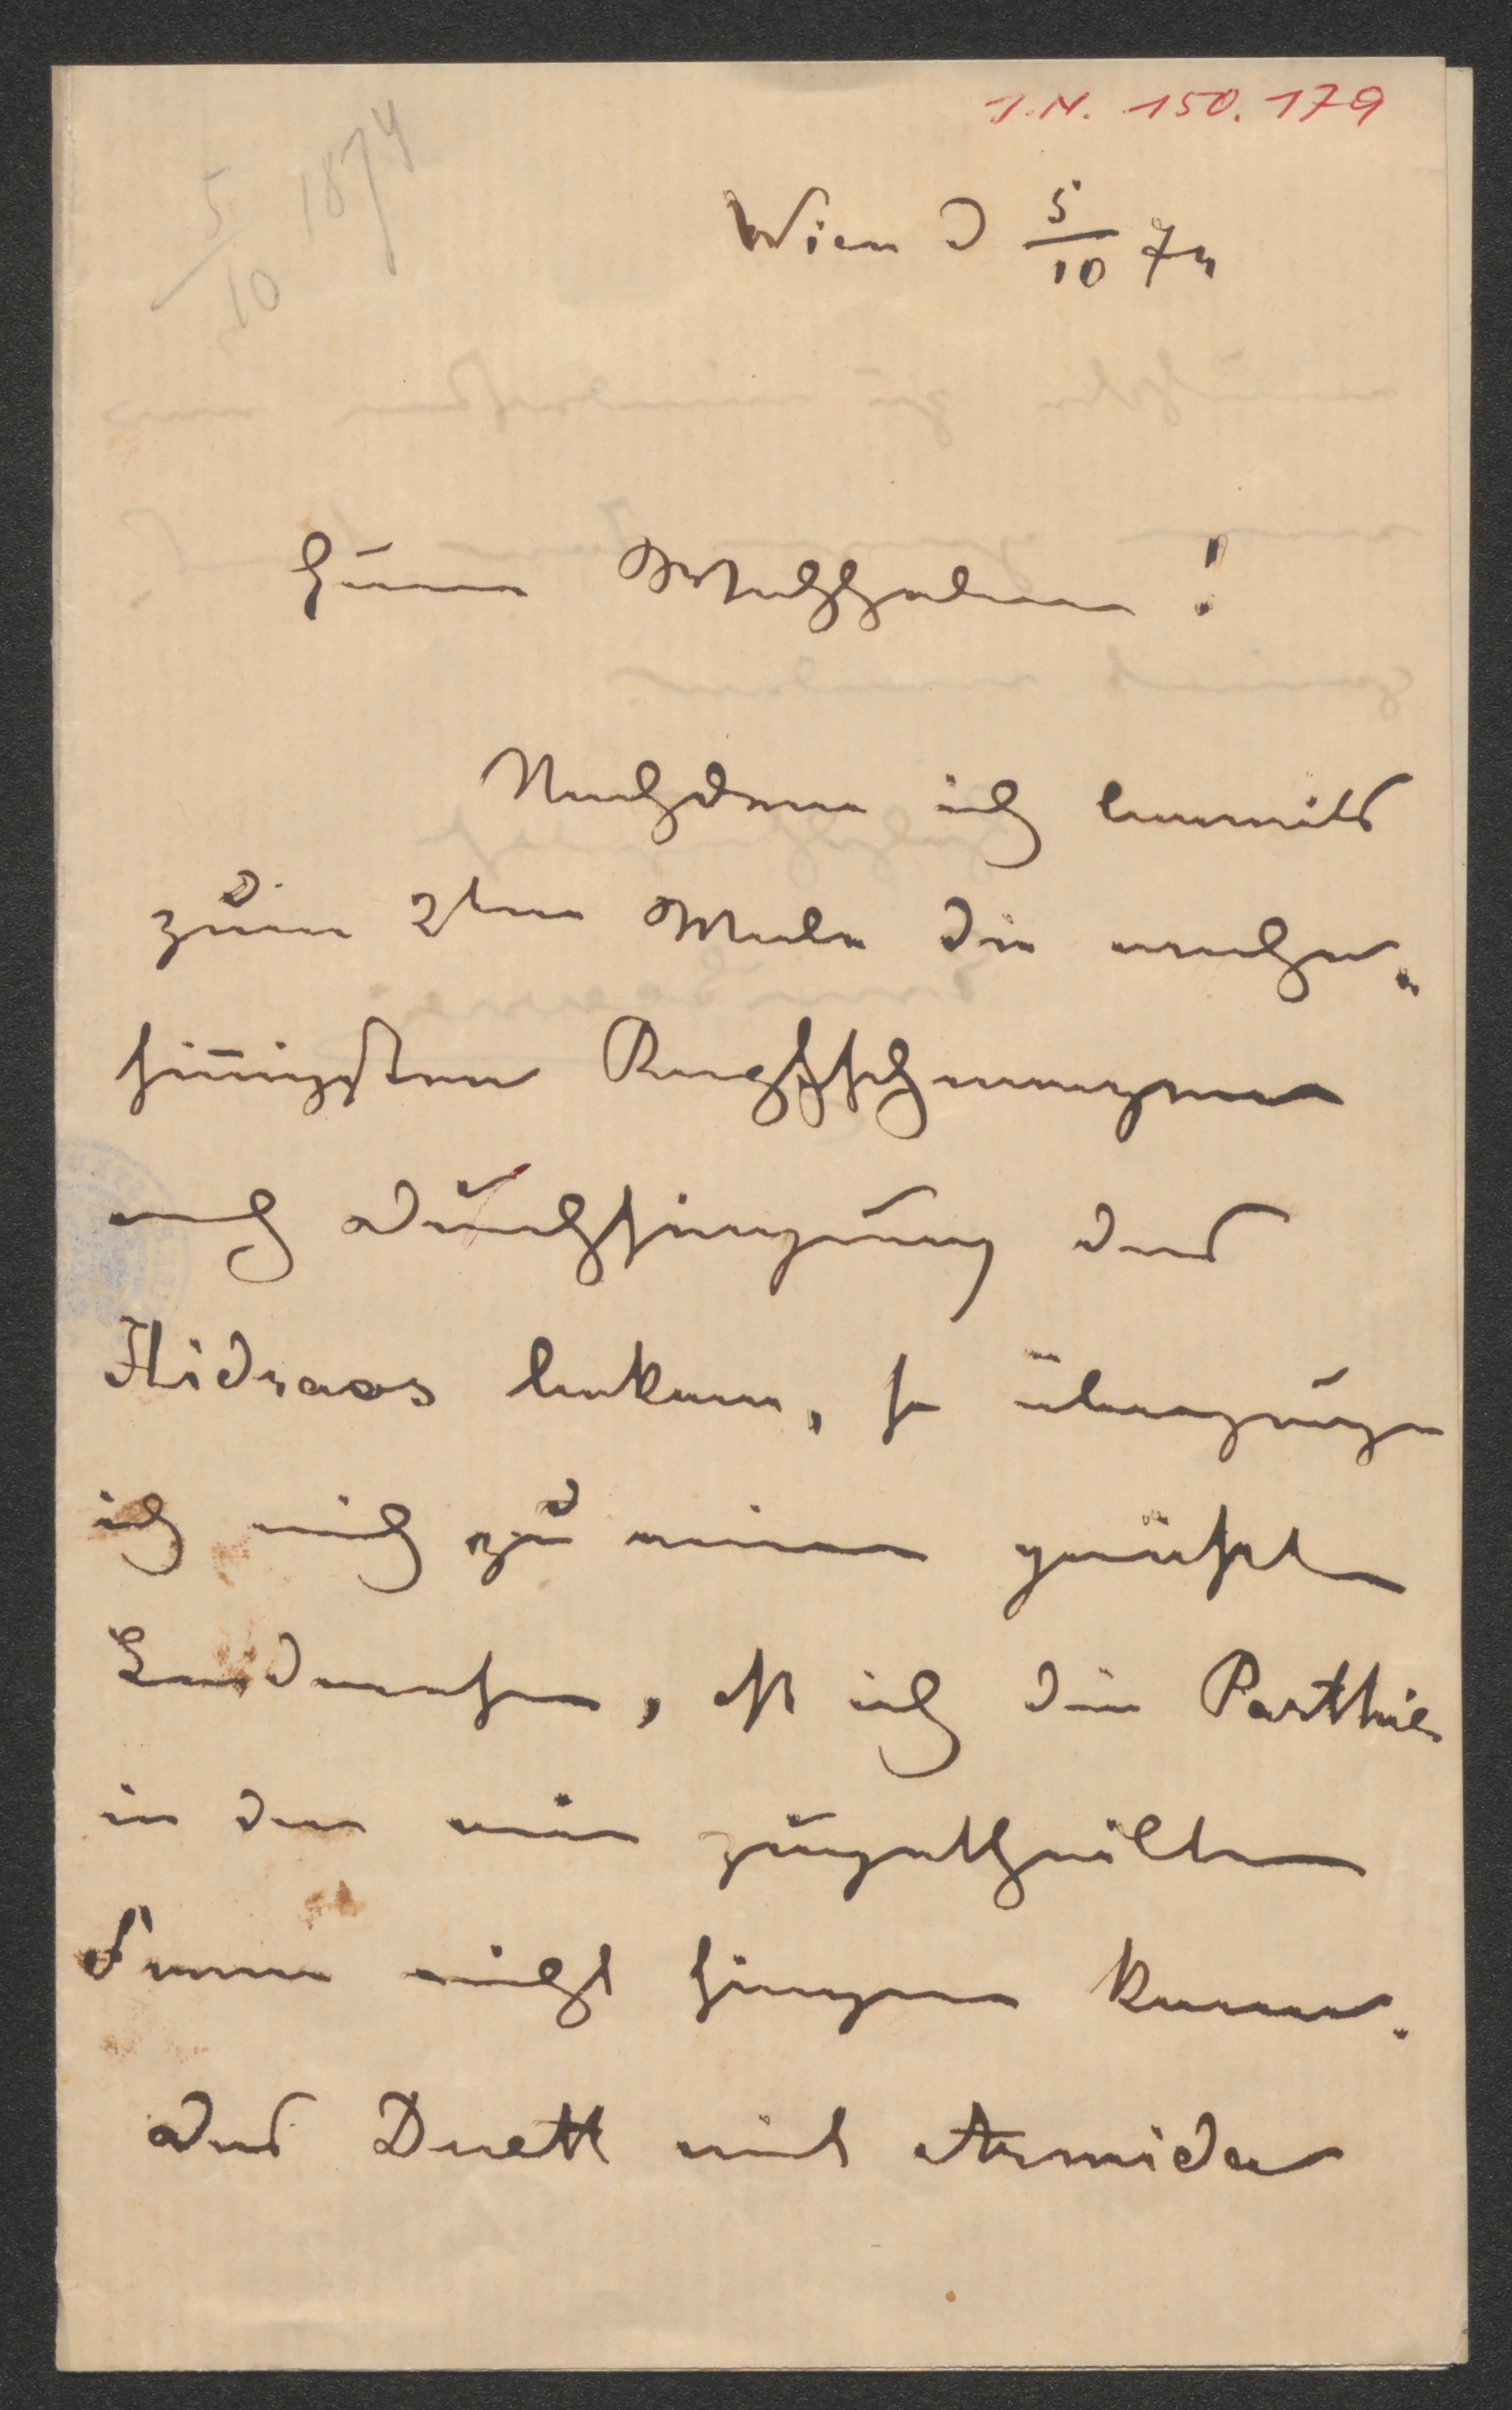 I.N. 150.179
5/10 1874
Wien d 5/10 74
Euer Wohlgeboren!
Nachdem ich bereits
zum 2ten Male die
Rachschmerzen
nach Durchsingung des
Hidraos bekam, so überzeuge
ich mich zu meinem größten
Leidwesen, daß ich die Parthie
in der mir zugetheilten
Form nicht singen kann.
Das Duett mit Armida